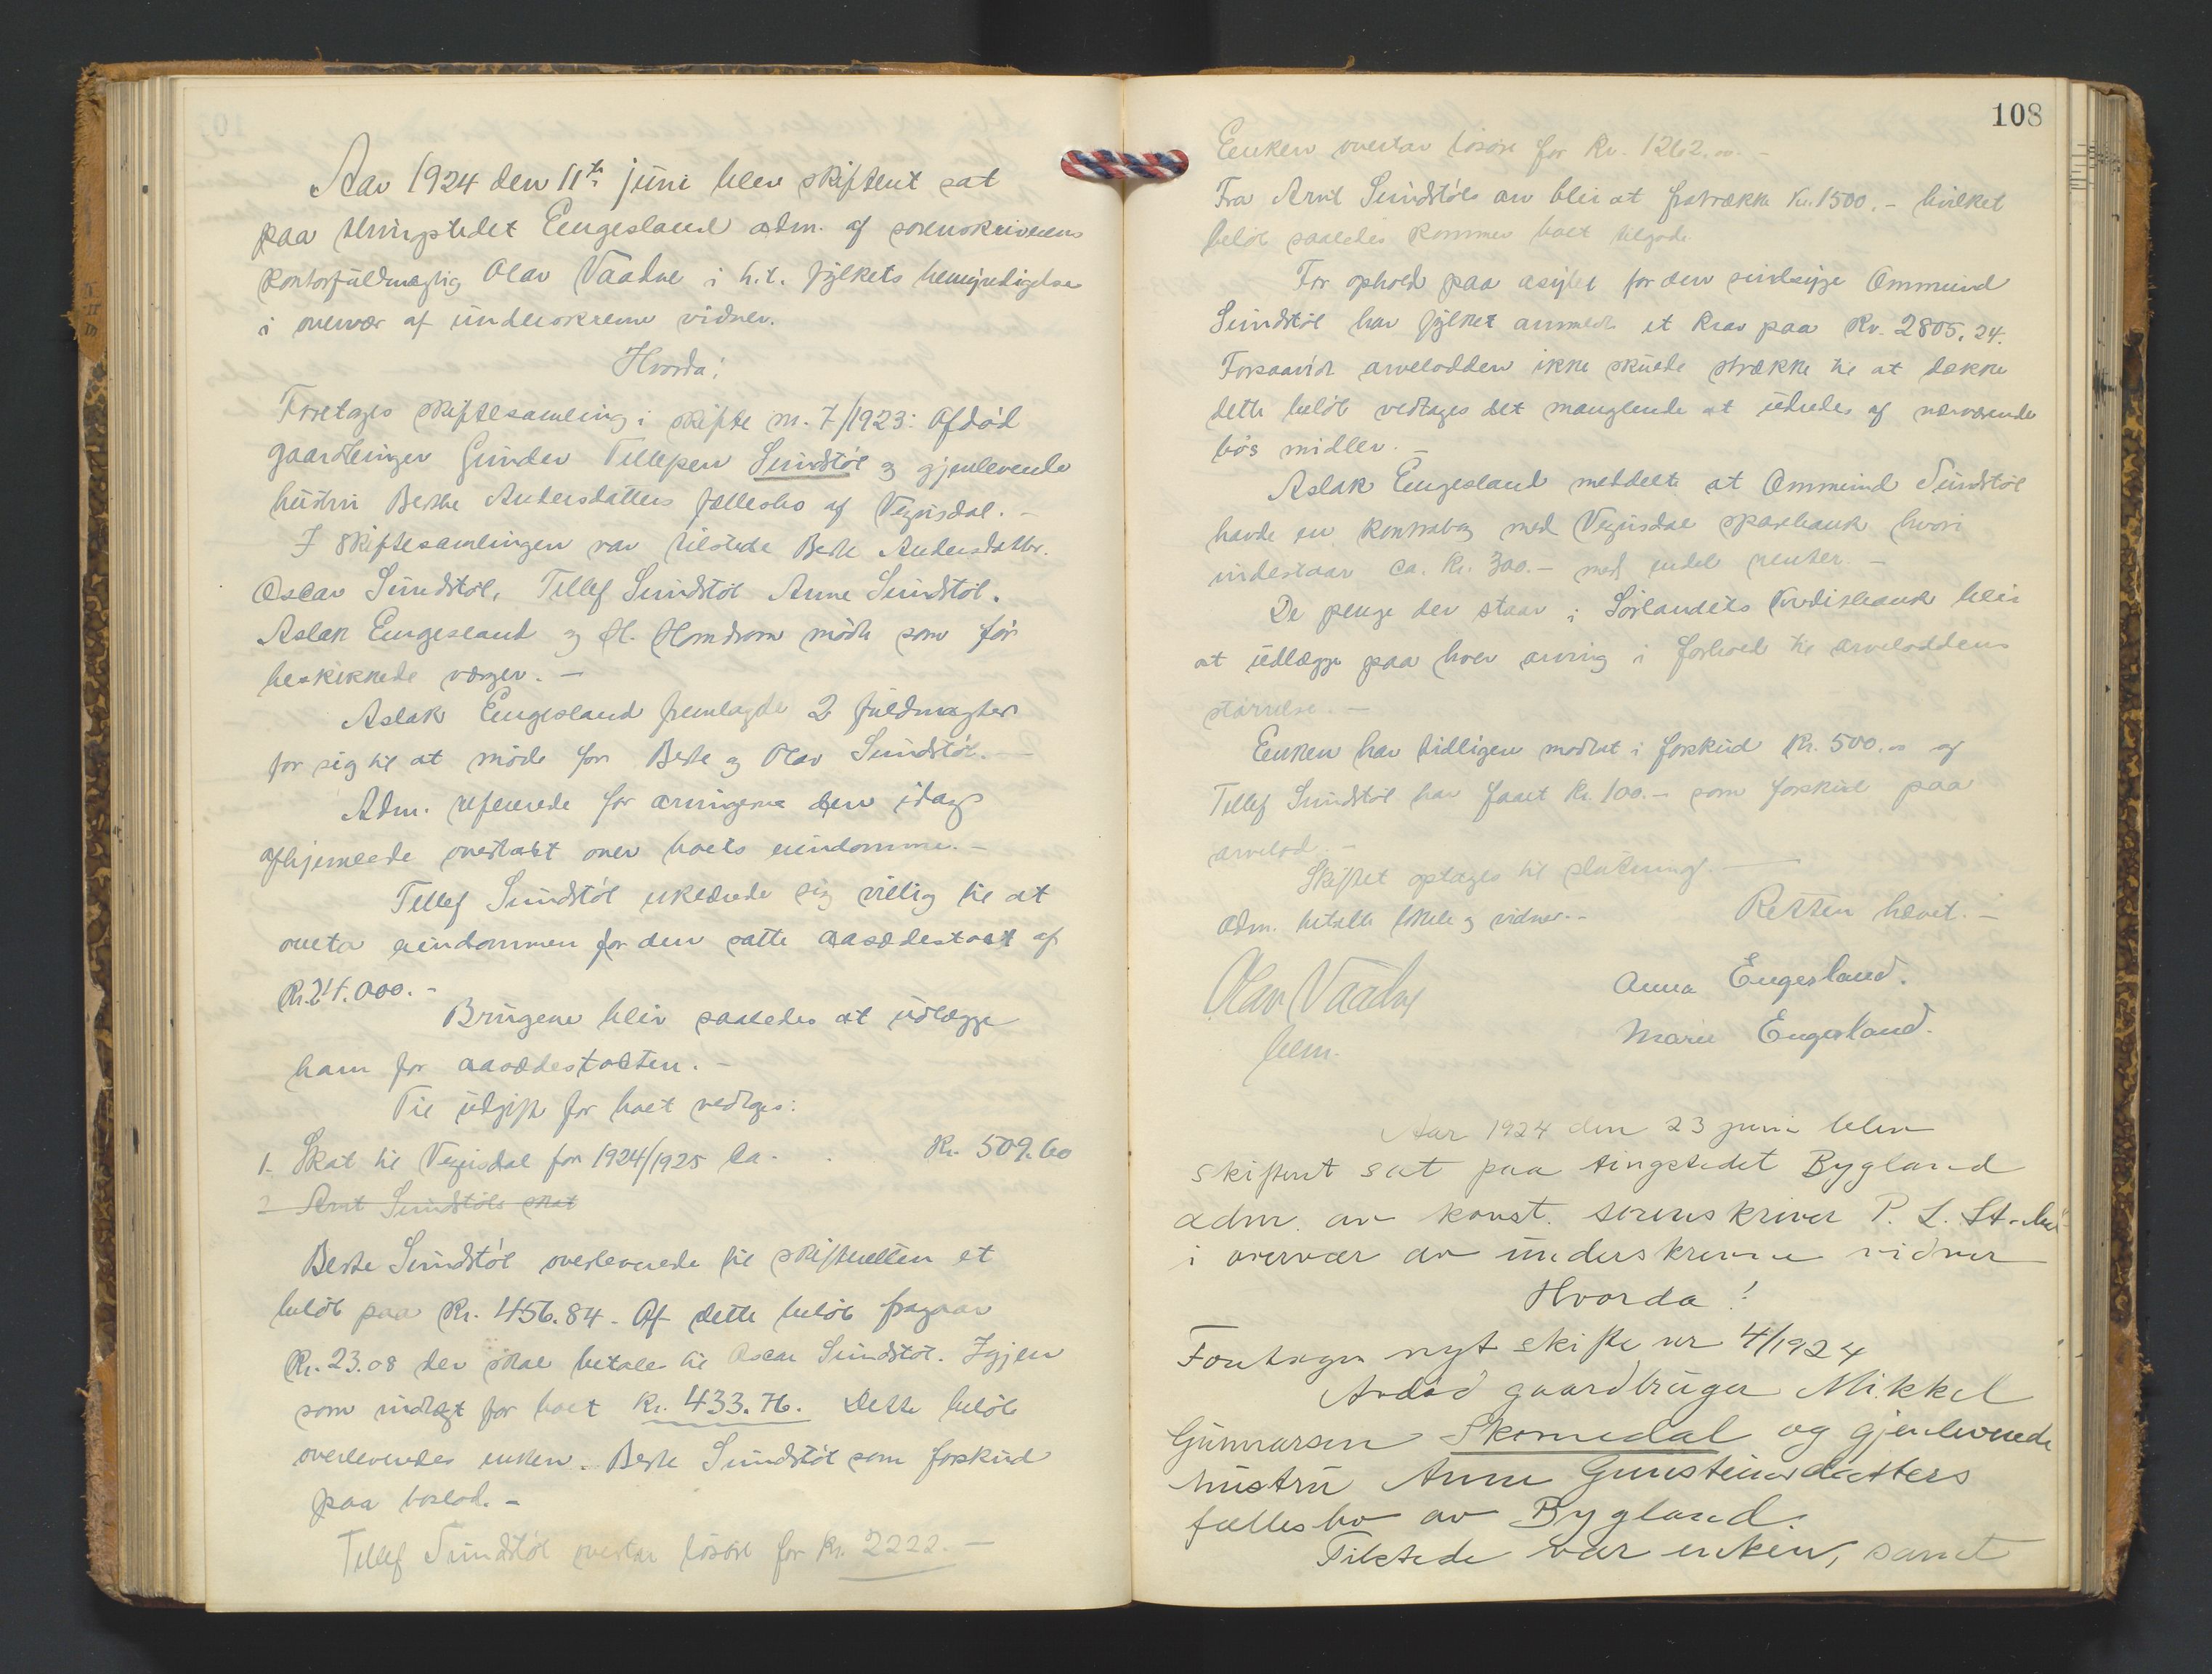 Aar 1924 den 11te juni blev skifteret sat
paa thingstedet Engesland adm. af sorenskriverens
kontorfuldmægtig Olav Vaadne i h.t. fylkets bemyndigelse
i overvær af underskrevne vidner.
Hvorda:
Foretages skiftesamling i skifte nr. 7/1923: Afdød
gaardbruger Gunder Tellefsen Sundstöl og gjenlevende
hustru Berthe Andersdatters fællesbo af Vegusdal. -
I skiftesamlingen var tilstede Berte Andersdatter.
Oscar Sundstöl, Tellef Sundstöl Anne Sundstöl.
Aslak Engesland og H. Homdrom mödte som för
beskikkede værger. -
Aslak Engesland fremlagde 2 fuldmagter
for sig til at möde for Berte og Olav Sundstöl. -
Adm. refererede for arvingerne den idag
afhjemlede overtakst over boets eiendomme. -
Tellef Sundstöl erklærede sig villig til at
overta eiendommen for den satte aasædestakst af
Kr. 24.000. -
Brugene blir saaledes at udlægge
ham for aasædestaksten. -
Til udgift for boet vedtoges:
1. Skat til Vegusdal for 1924/1925 ca. . Kr. 509.60
2 Arnt Sundstöls skat
Berte Sundstöl overleverede til skifteretten et
belöb paa Kr. 456.84 - Af dette belöb fragaar
Kr. 23.08 der skal betales til Oscar Sundstöl. Igjen
som indtægt for boet Kr. 433.76. Dette belöb
overleveredes enken Berte Sundstöl som forskud
paa boslod. -
Tellef Sundstöl overtar lösöre for Kr. 2222. -
108
Enken overtar lösöre for Kr. 1262.00. -
Fra Arnt Sundstöls arv blir at fratrække Kr. 1500. - hvilket
belöb saaledes kommer boet tilgode.
For ophold paa asylet for den sindssyge Ommund
Sundstöl har fylket anmeldt et krav paa Kr. 2805,24.
Forsaavidt arvelodden ikke skulde strække til at dække
dette belöb vedtages det manglende at udredes af nærværende
bos midler. -
Aslak Engesland meddelte at Ommund Sundstöl
havde en kontrabog med Vegusdal sparebank hvori
indestaar ca. Kr. 300. - med endel renter. -
De penge der staar i Sörlandets Kreditbank blir
at udlægge paa hver arving i forhold til arveloddens
störrelse. -
Enken har tidligere modtat i forskud Kr. 500.00 og
Tellef Sundstöl har faaet Kr. 100. - som forskud paa
arvelod. -
Skiftet optages til slutning. -
Adm. betalte lokale og vidner. - Retten hævet. -
Olav Vaadne
bem.
Anna Engesland.
Marie Engesland.
Aar 1924 den 23 juni blev
skifteret sat paa tingstedet Bygland
adm. av konst. sorenskriver P. L.
i overvær av underskrevne vidner
Hvorda!
Foretoges nyt skifte nr 4/1924
Avdöd gaardbruger Mikkel
Gunnarsen Skomedal og gjenlevende
hustru Anne Gunsteinsdatters
fællesbo av Bygland.
Tilstede var enken, samt